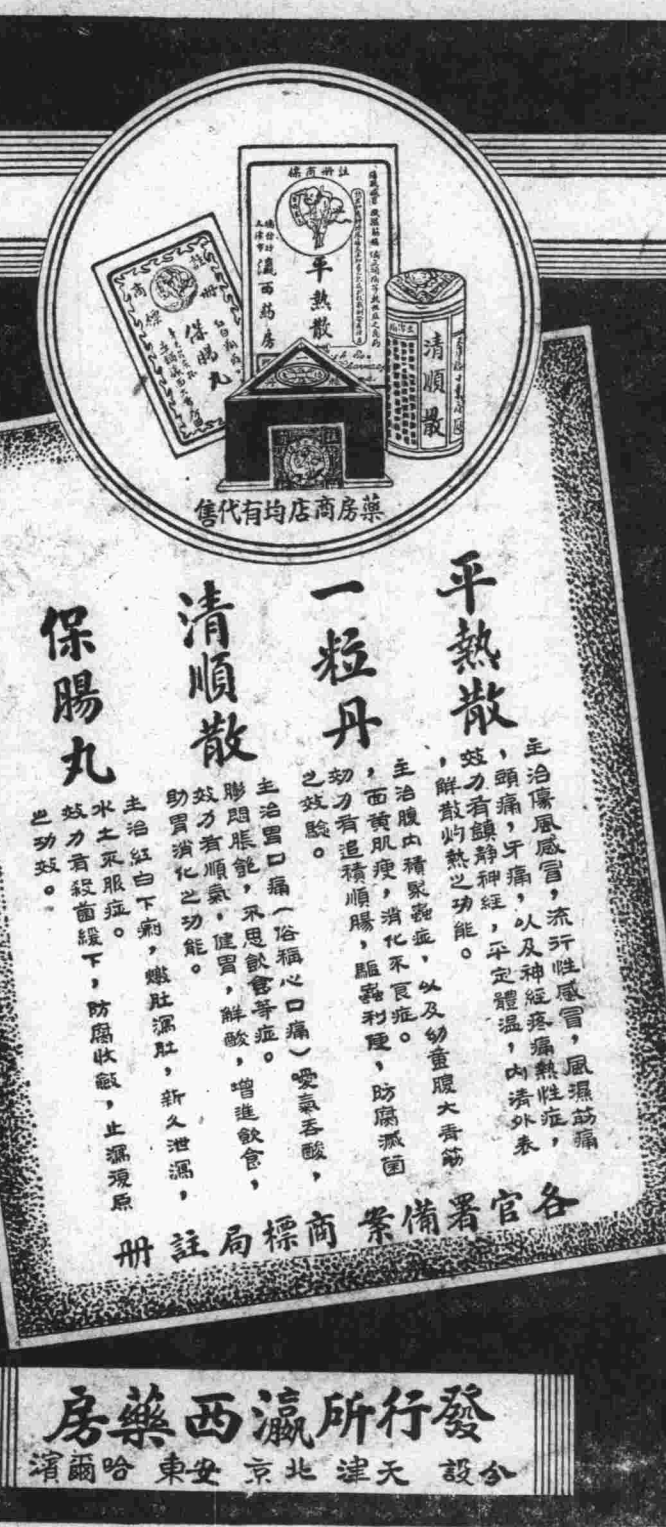 註冊商標
平熱散
瀛西药房
註冊
商標
保腸丸
清順散
藥房商店均有代售
平熱散
主治傷風感冒，流行性感冒，風濕筋痛
，頭痛，牙痛，以及神經疼痛熱性症，
效力有鎮靜神經，平定體溫，內清外表
，解散灼熱之功能。
一粒丹
主治腹內積聚蟲症，以及幼童腹大青筋
，面黃肌瘦，消化不良症。
効力有追積順腸，驅蟲利便，防腐滅菌
之效驗。
清順散
主治胃口痛（俗稱心口痛）噯氣吞酸，
膨悶脹飽，不思飲食等症。
效力有順氣，健胃，解酸，增進飲食，
助胃消化之功能。
保腸丸
主治紅白下痢，燉肚瀉肚，新久泄瀉，
水土不服症。
效力有殺菌緩下，防腐收斂，止瀉復原
之功效。
各官署備案 商標局註冊
發行所瀛西藥房
分設 天津 北京 安東 哈爾濱